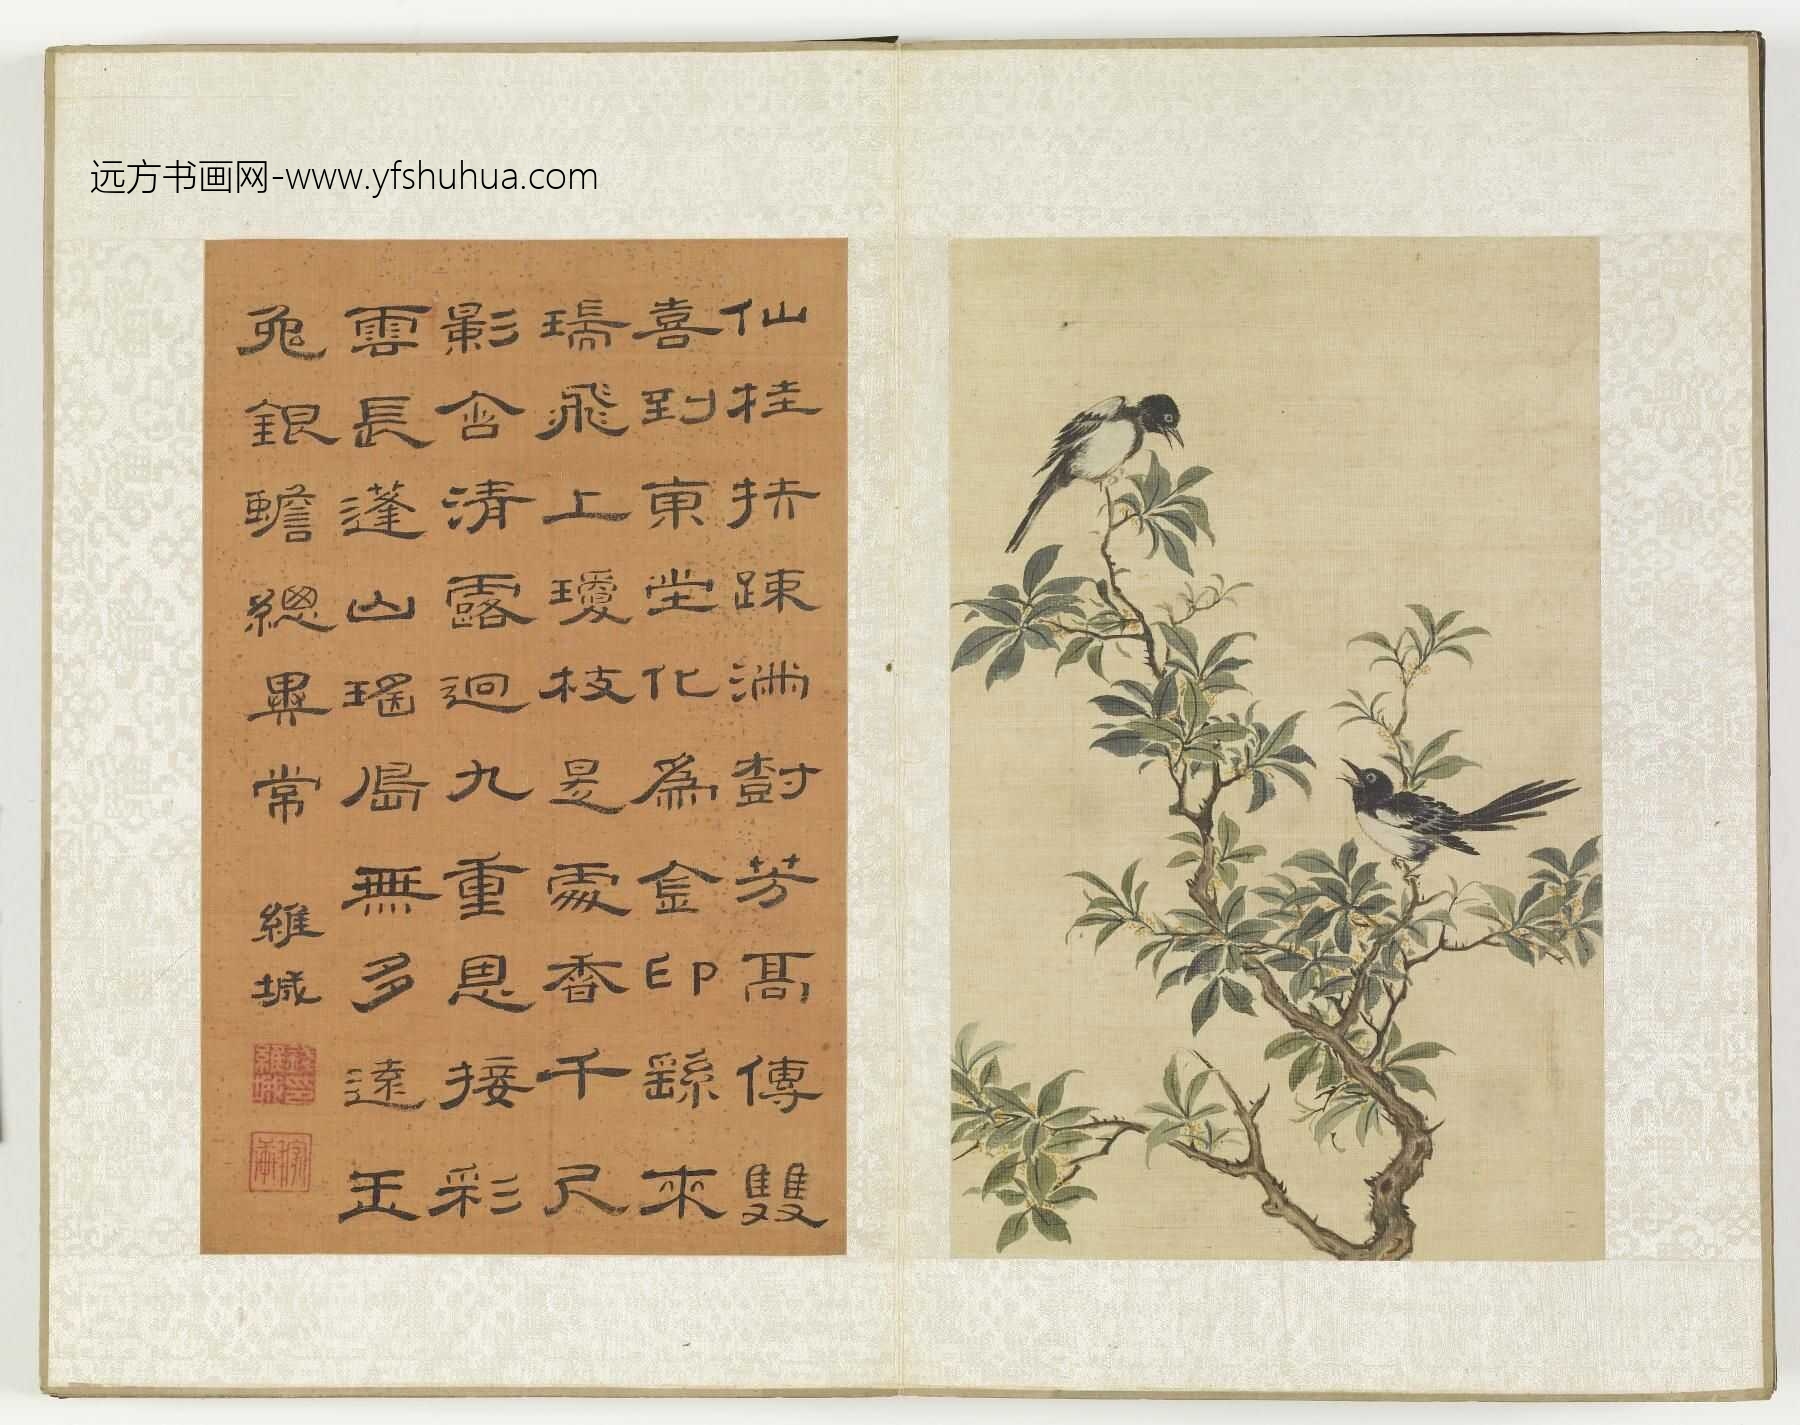 远方书画网-www.yfshuhua.com
仙桂扶疎滿樹芳高傳雙
喜到東堂化爲金印繇來
瑞飛上瓊枝是處香千尺
影含清露迥九重恩接彩
雲長蓬山瑤島無多遠玉
兔銀蟾總異常
維城